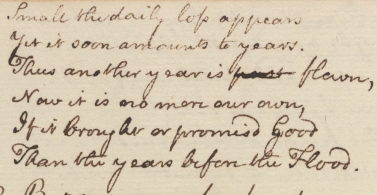 Small the daily loss appears
Yet it soon amounts to years.
Thus another year is past flown,
Now it is no more our own,
If it brought or promis'd Good
Than the years before the Flood.